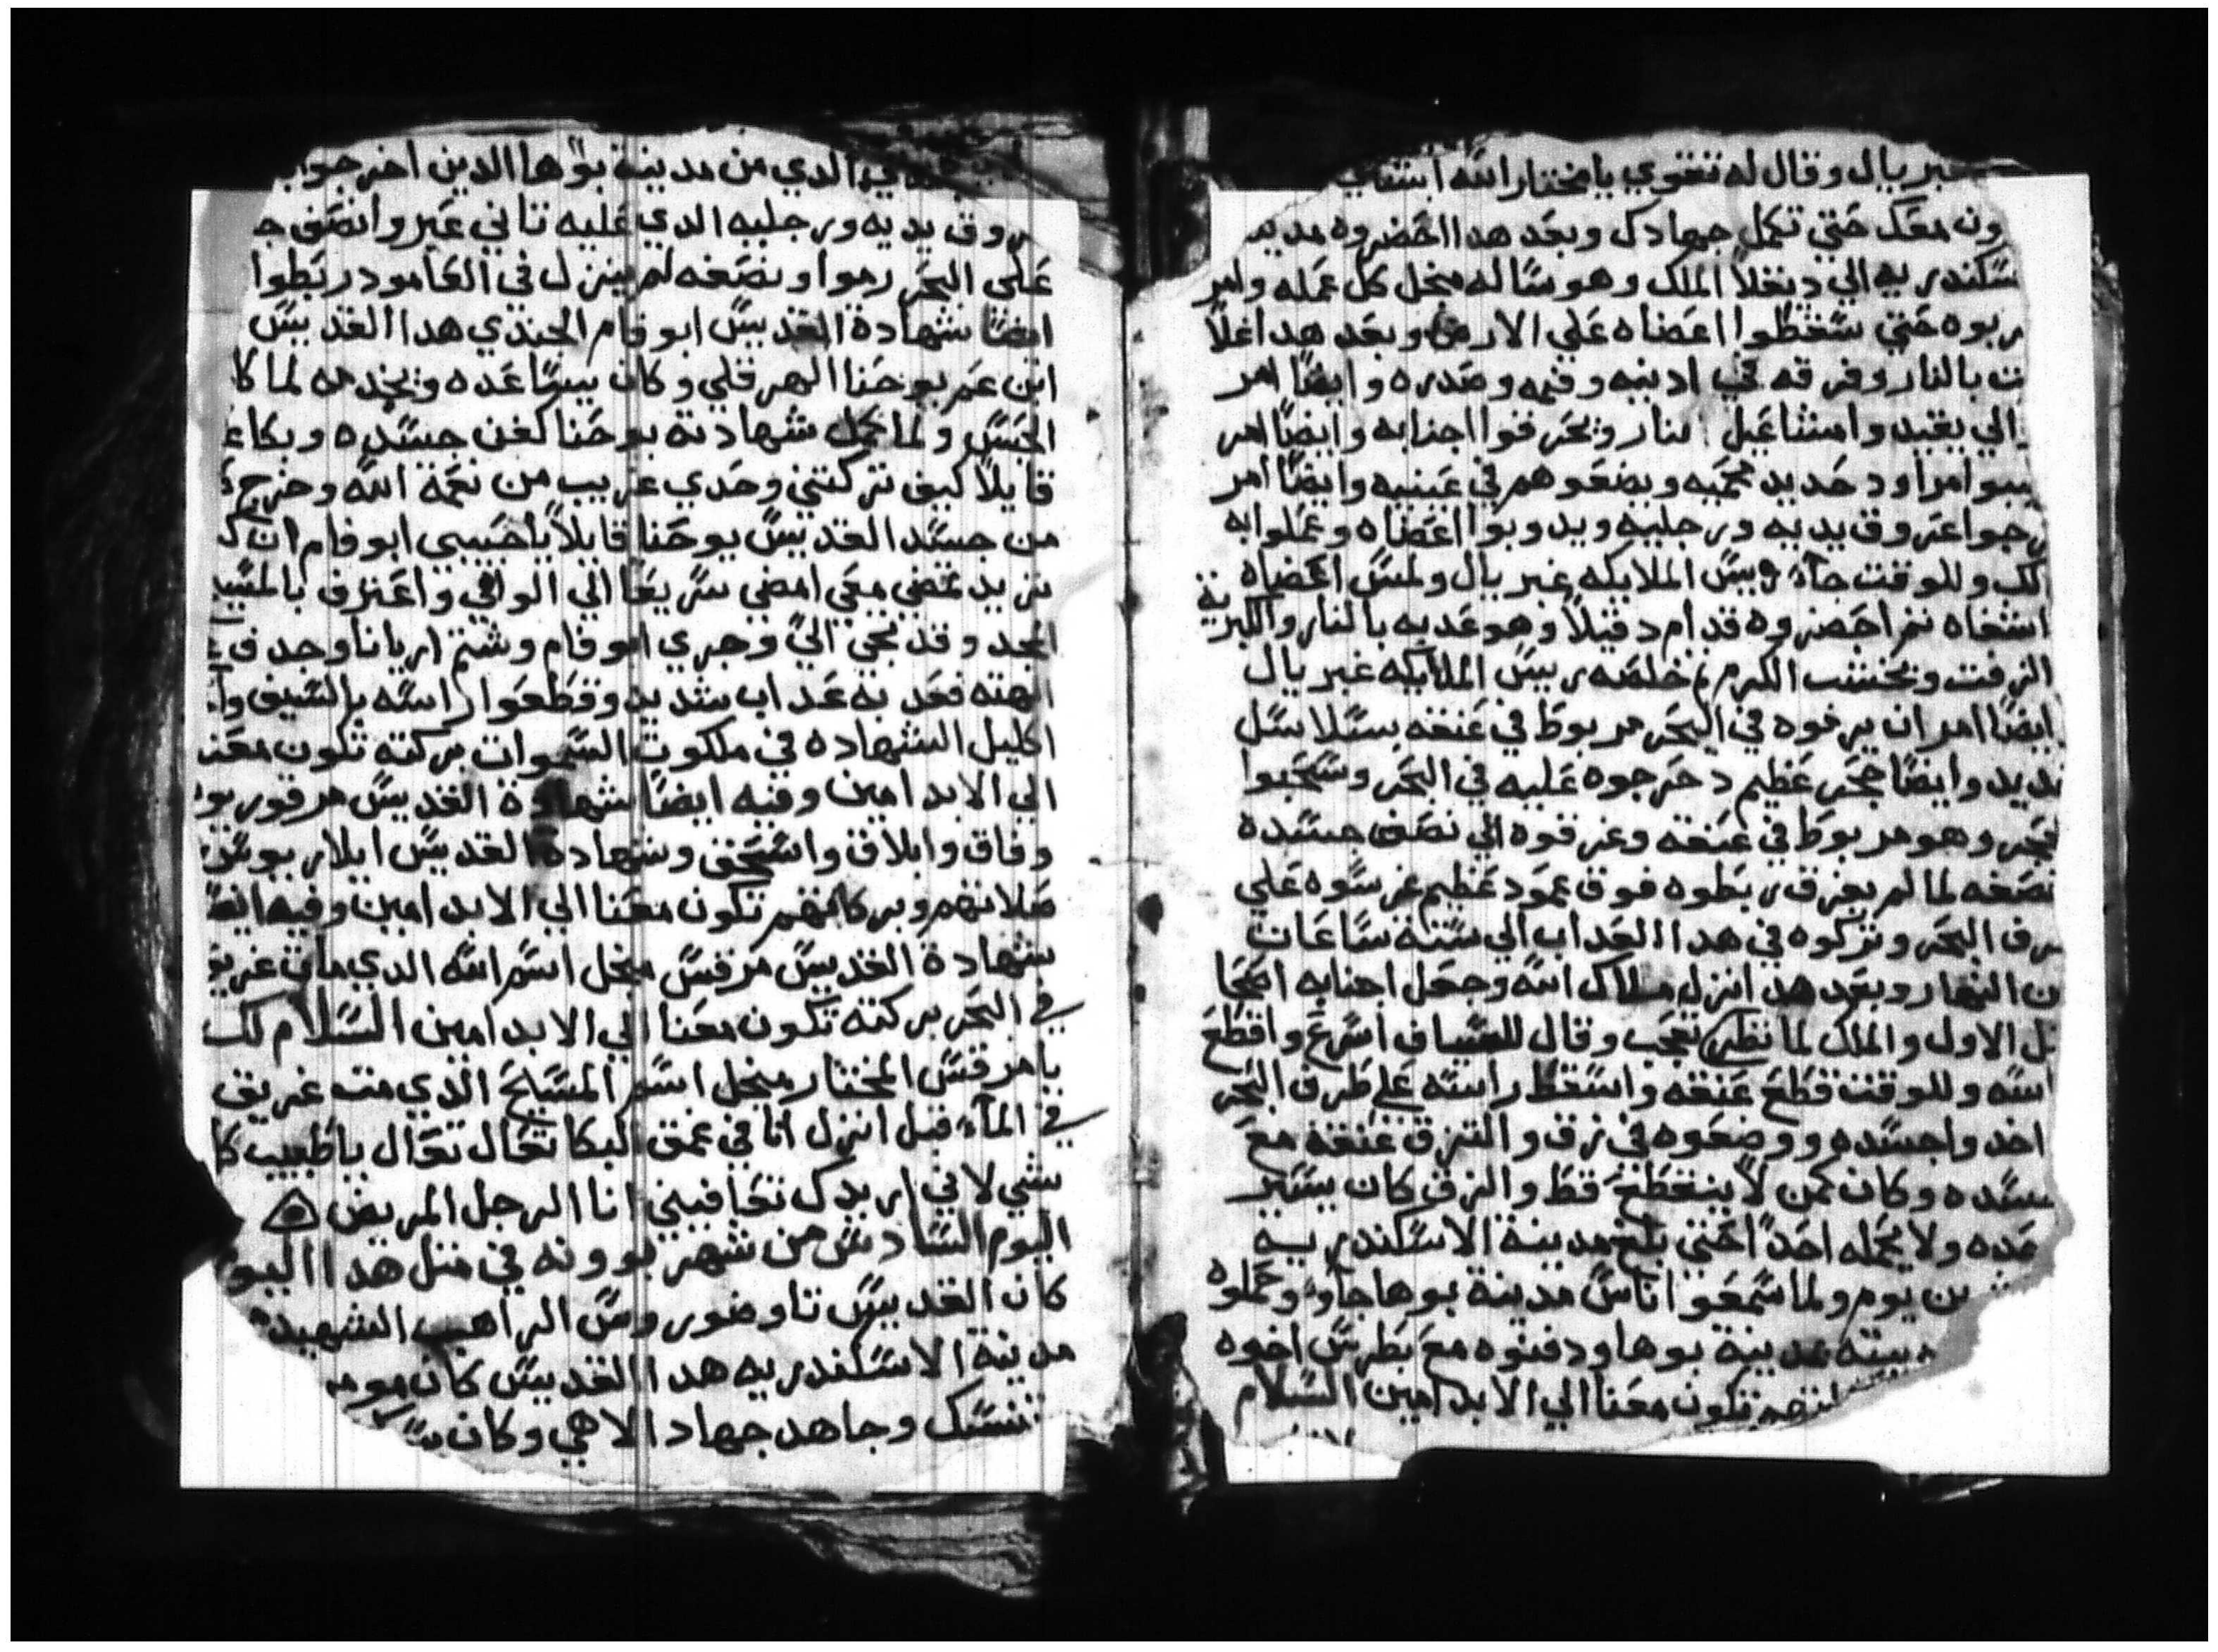 غبريال وقال له تقوي يا مختار الله
ون معك حتي تكمل جهادك وبعد هدا احضروه مدينه
سكندريه الي دقلا الملك وهو ساله منجل كل عمله وامر
ربوه حتي سقطوا اعضاه علي الارض وبعد هدا غلا
ت بالنار وفرقه في ادنيه وفمه وصدره وايضا امر
الي يقيد وامشاعيل بنار ويحرقوا اجنابه وايضا امر
يبوا مراود حديد محميه ويضعوهم في عينيه وايضا امر
رجوا عروق يديه ورجليه ويدوبوا اعضاه وعملوا به
لك وللوقت جآء رييس الملايكه غبريال ولمس اعضاه
اشفاه تم احضروه قدام دقيلا وهو عدبه بالنار والكبريته
الزفت وبخشب الكرم خلصه رييس الملايكه غبريال
ايضا امر ان يرفوه في البحر مربوط في عنقه بسلاسل
ديد وايضا حجر عظيم دحرجوه عليه في البحر وسحبوا
لحجر وهو مربوط في عنقه وغرقوه الي نصف جسده
نصفه لما لم يغرق ربطوه فوق عمود عظيم غرسوه علي
رف البحر وتركوه في هدا العداب الي ستة ساعات
ن النهار وبعد هدا نزل ملاك الله وجعل اجنابه اصحا
تل الاول والملك لما نظره تعجب وقال للسياف اسرع واقطع
اسه وللوقت قطع عنقه واسقط راسه علي طرف البحر
اخدوا جسده ووضعوه في زق والتزق عنقه مع
سده وكان كمن لا ينقطع قط والزق كان يسير
حده ولا يحمله احدا حتي بلغ مدينة الاسكندريه
ين يوم ولما سمعوا اناس مدينة بوها جاوء وحملوه
بيته بمدينة بوها ودفنوه مع بطرس اخوه
تكون معنا الي الابد امين السلام
الدي من مدينة بوها الدين اخرجوا
روق يديه ورجليه الدي عليه تاني عبر وانصف
علي البحر رموا ونصفه لم ينزل في العامود ربطوا
ايضا شهادة القديس ابوفام الجندي هدا القديس
ابن عم يوحنا الهرقلي وكان يساعده ويخدمه لما كا
الحبس ولما كمل شهادته يوحنا كفن جسده وبكا
قايلا كيف تركتني وحدي غريب من نعمة الله وخرج
من جسد القديس يوحنا قايلا يا حبيبي ابوفام ان
تريد تمضي معي امضي سريعا الي الوالي واعترف بالمسيح
المجد وقد تجي الي وجري ابوفام وشتم اريانا وجدف
الهته فعدبه عداب شديد وقطعوا راسه بالسيف وا
اكليل الشهاده في ملكوت السموات بركته تكون معنا
الي الابد امين وفيه ايضا شهادة القديس مرقوريو
وفاق وابلاق واسحق وشهادة القديس ايلاريوس
صلاتهم وبركاتهم تكون معنا الي الابد امين وفيه ايضا
شهادة القديس مرقس منجل اسم الله الدي مات غريق
في البحر بركته تكون معنا الي الابد امين السلام لك
يا مرقس المختار منجل اسم المسيح الدي مت غريق
في المآء قبل انزل انا في عمق البكا تعال تعال يا طبيب كا
شي لاني اريدك تعافيني انا الرجل المريض
اليوم السادس من شهر بوونه في متل هدا اليو
كان القديس تاوضوروس الراهب الشهيد
مدينة الاسكندريه هدا القديس كان
تنسك وجاهد جهاد الاهي وكان